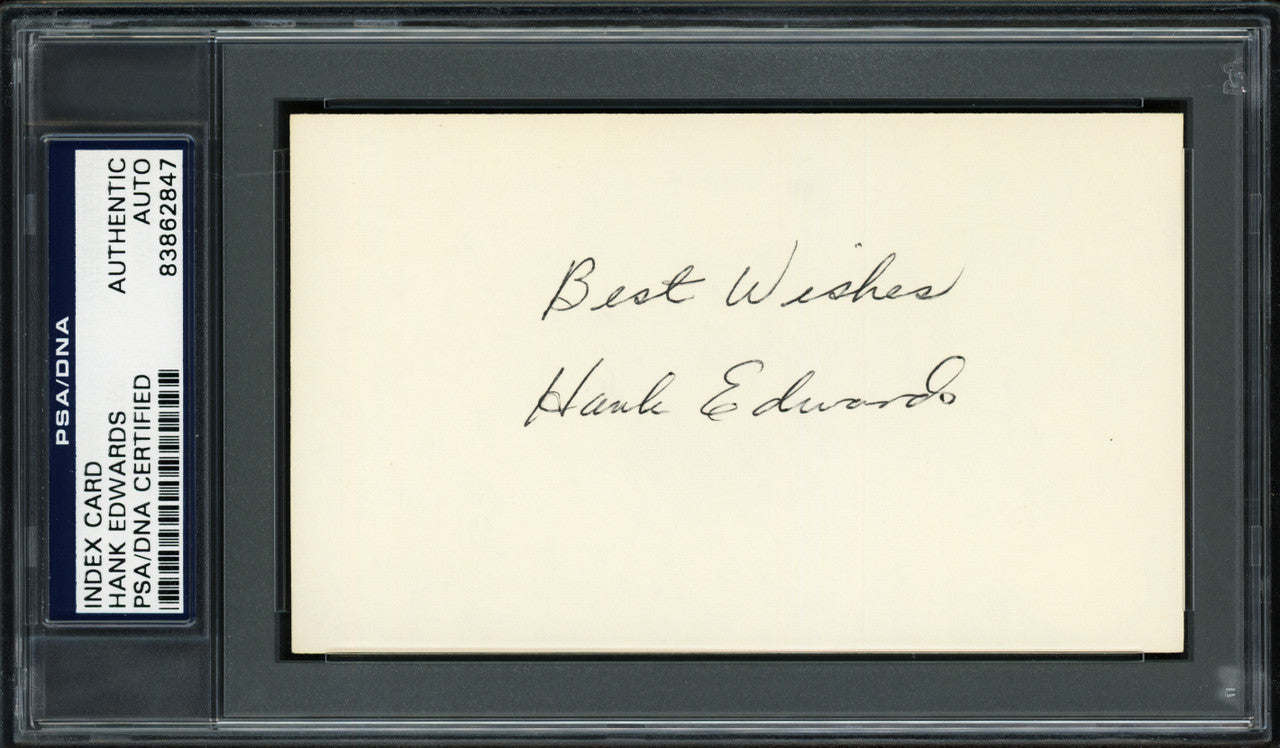 PSA/DNA
INDEX CARD AUTHENTIC
HANK EDWARDS AUTO
PSA/DNA CERTIFIED 83862847
Best Wishes
Hank Edwards